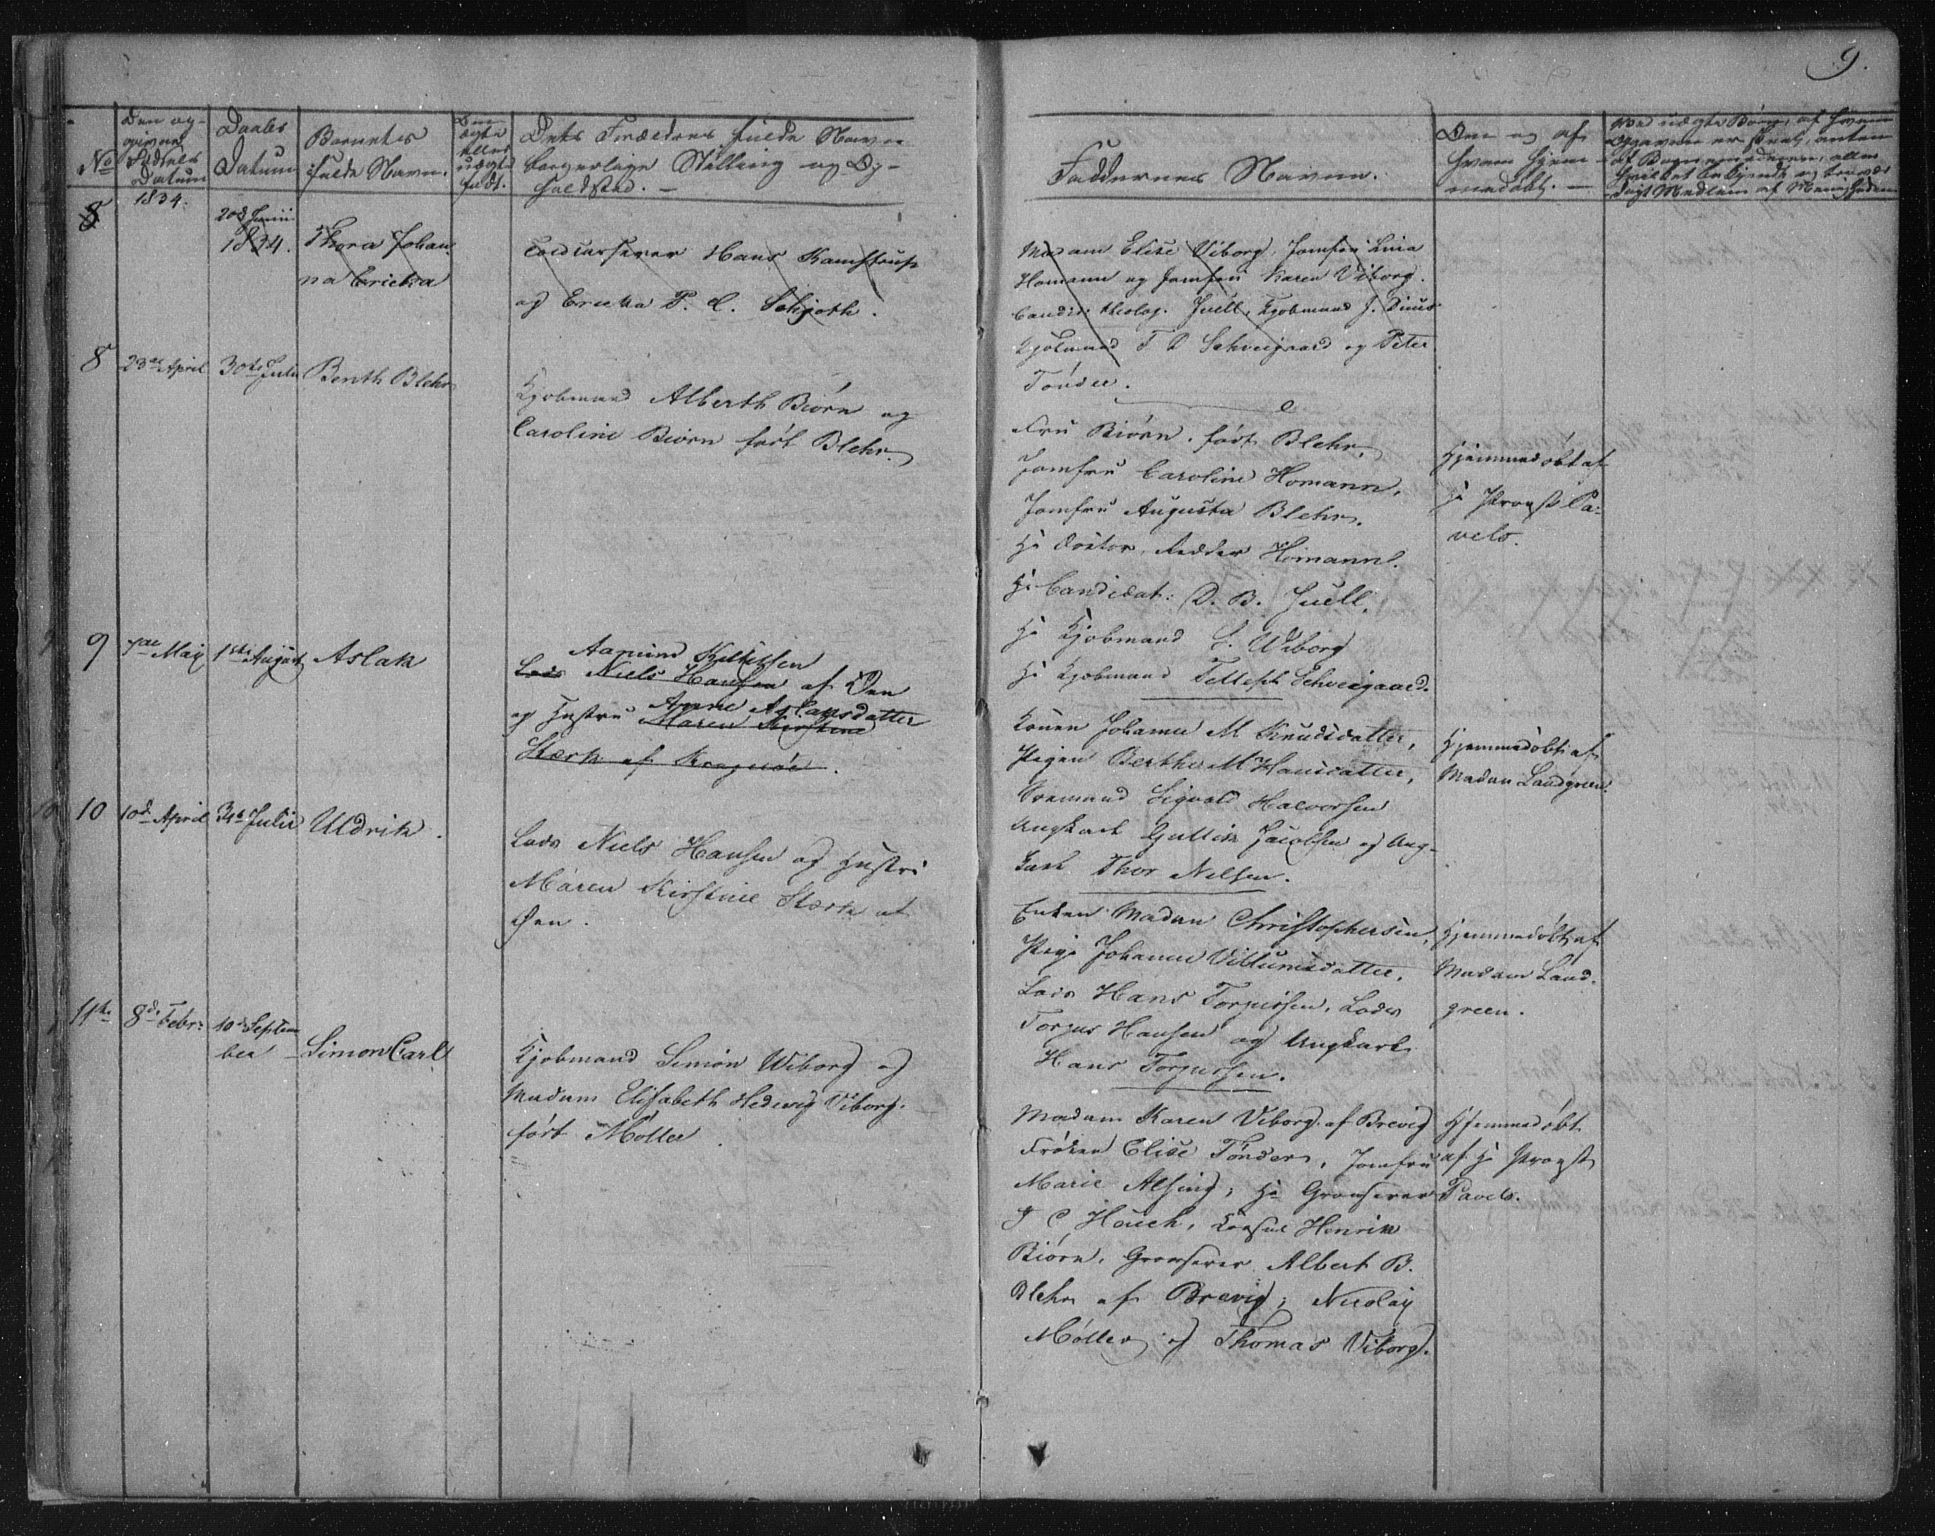 9.
No
Den op-
givne
Fødsels
Datum
1834.
Daabs
Datum
Barnets
fulde Navn.
Om
ægte
eller
uægte
født.
Dets Forældres fulde Navn
borgerlige Stilling og Op-
holdsted. –
Faddernes Navne.
Om og af
hvem hjem-
medøbt. –
8
20de Junii
1834.
Thora Johan-
na Ericka
Toldcasserer Hans Kamstrup
og Ericka P. C. Schjøth.
Madam Elise Viborg, Jomfru Lina
Homann og Jomfru Karen Viborg.
Candid: theolog. Juell, Kjøbmand J.
Kjøbmand T D Schweigaard og Peter
Tønder.
8
23de April
30te Julii
Benth Blehr
Kjøbmand Alberth Biørn og
Caroline Biørn født Blehr.
Fru Biørn, født Blehr,
Jomfru Caroline Homann,
Jomfru Augusta Blehr.
Hr Doctor Homann.
Hr Candidat: D. B. Juell,
Hr Kjøbmand C. Wiborg
Hr Kjøbmand Tellefs Schweigaard.
Hjemmedøbt af
Hr Provst Pa-
vels.
9
7de Maij
1ste August
Aslak
Aamund Kittilsen
Lods Niels Hansen af Øen
og Hustru Anne Aslaksdatter
Maren Kirstine
Stærk af Kragerøe.
Konen Johanne M Knudsdatter,
Pigen Berthe M Hansdatter,
Sigvald Halvorsen
Ungkarl Guttik Jacobsen og Ung-
karl Thor Nelsen.
Hjemmedøbt af
Madam Landgreen.
10
10de April
3te Julii
Uldrik.
Lods Niels Hansen og Hustru
Maren Kirstine Stærk af
Øen.
Enken Madam Christophersen,
Pige Johanne Villumsdatter,
Lods Hans Torgersen, Lods
Torger Hansen og Ungkarl
Hans Torgersen.
Hjemmedøbt af
Madam Land-
green.
11te
8de Febr:
10de Septem
ber
Simon Carl
Kjøbmand Simon Wiborg og
Madam Elisabeth Hedevig Viborg.
født Møller.
Madam Karen Viborg af Brevig
Frøken Elise Tønder, Jomfru
Marie Alsing, Hr Grosserer
J C Houch, Consul Henrik
Biørn, Grosserer Albert B.
Blehr af Brevig, Nicolay
Møller og Thomas Viborg.
Hjemmedøbt
af Hr Provst
Pavels.